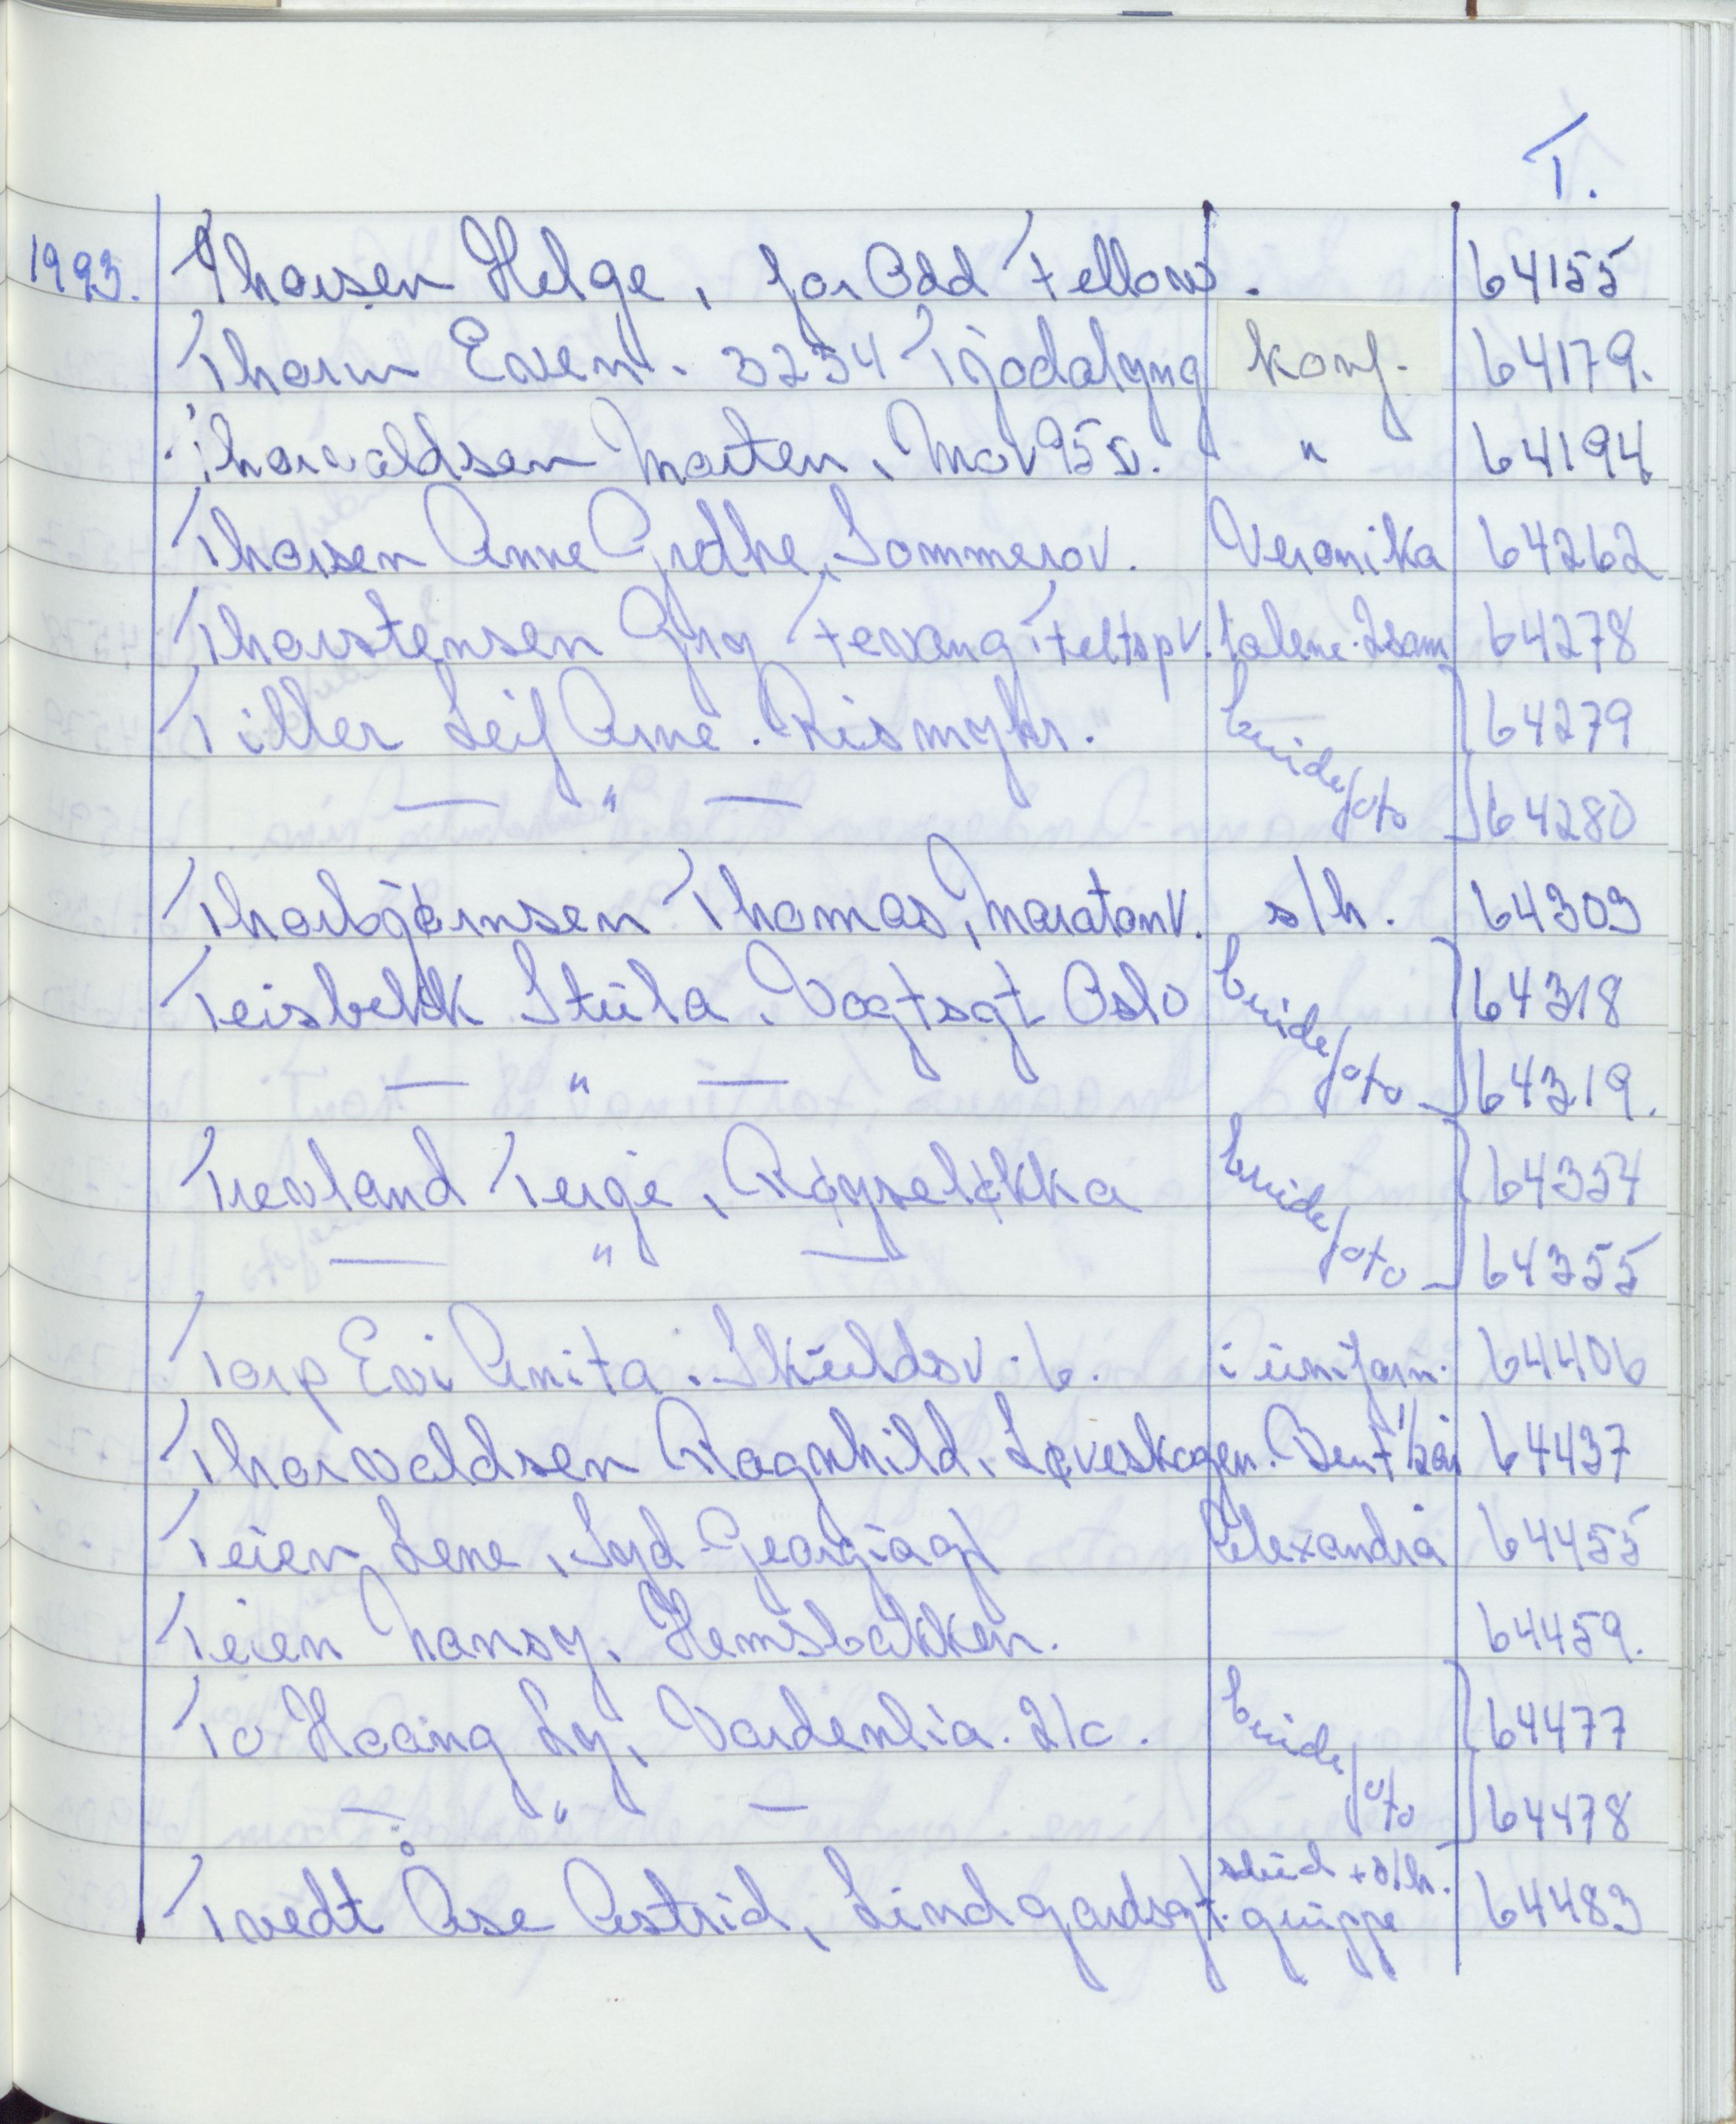 T.
1993. Thorsen Helge, for Odd Fellow. 64155
Thorm Even. 3234 Tjodalyng konf. 64179.
Thorvaldsen Morten, Mov 95 D. " 64194
Thorsen Anne Grethe, Sommerov. Veronika 64262
Thorstensen Gry Fevang Feltspv. alene. 2sam 64278
Tiller Leif Arne. Rismyhr. brude 64279
— " — foto 64280
Thorbjørnsen Thomas, Maratonv. s/h. 64303
Teisbekk Stula. Vogtsgt Oslo brude 64318
— " — foto 64319.
Trevland Terje, Røyseløkka brude 64354
— " — foto 64355
Torp Evi Anita. Skuldsv. 6. i uniform. 64406
Thorvaldsen Ragnhild. Løveskogen. Bent 1/2 år 64437
Teien Lene, Syd-Georgiagt Alexandra 64455
Teien Nansy. Hemsbakken. — 64459.
To Hoang Ly, Vardenlia. 21c. brude 64477
— " — foto 64478
Tvedt Åse Astrid, Lindgardsgt. stud + s/h. gruppe 64483